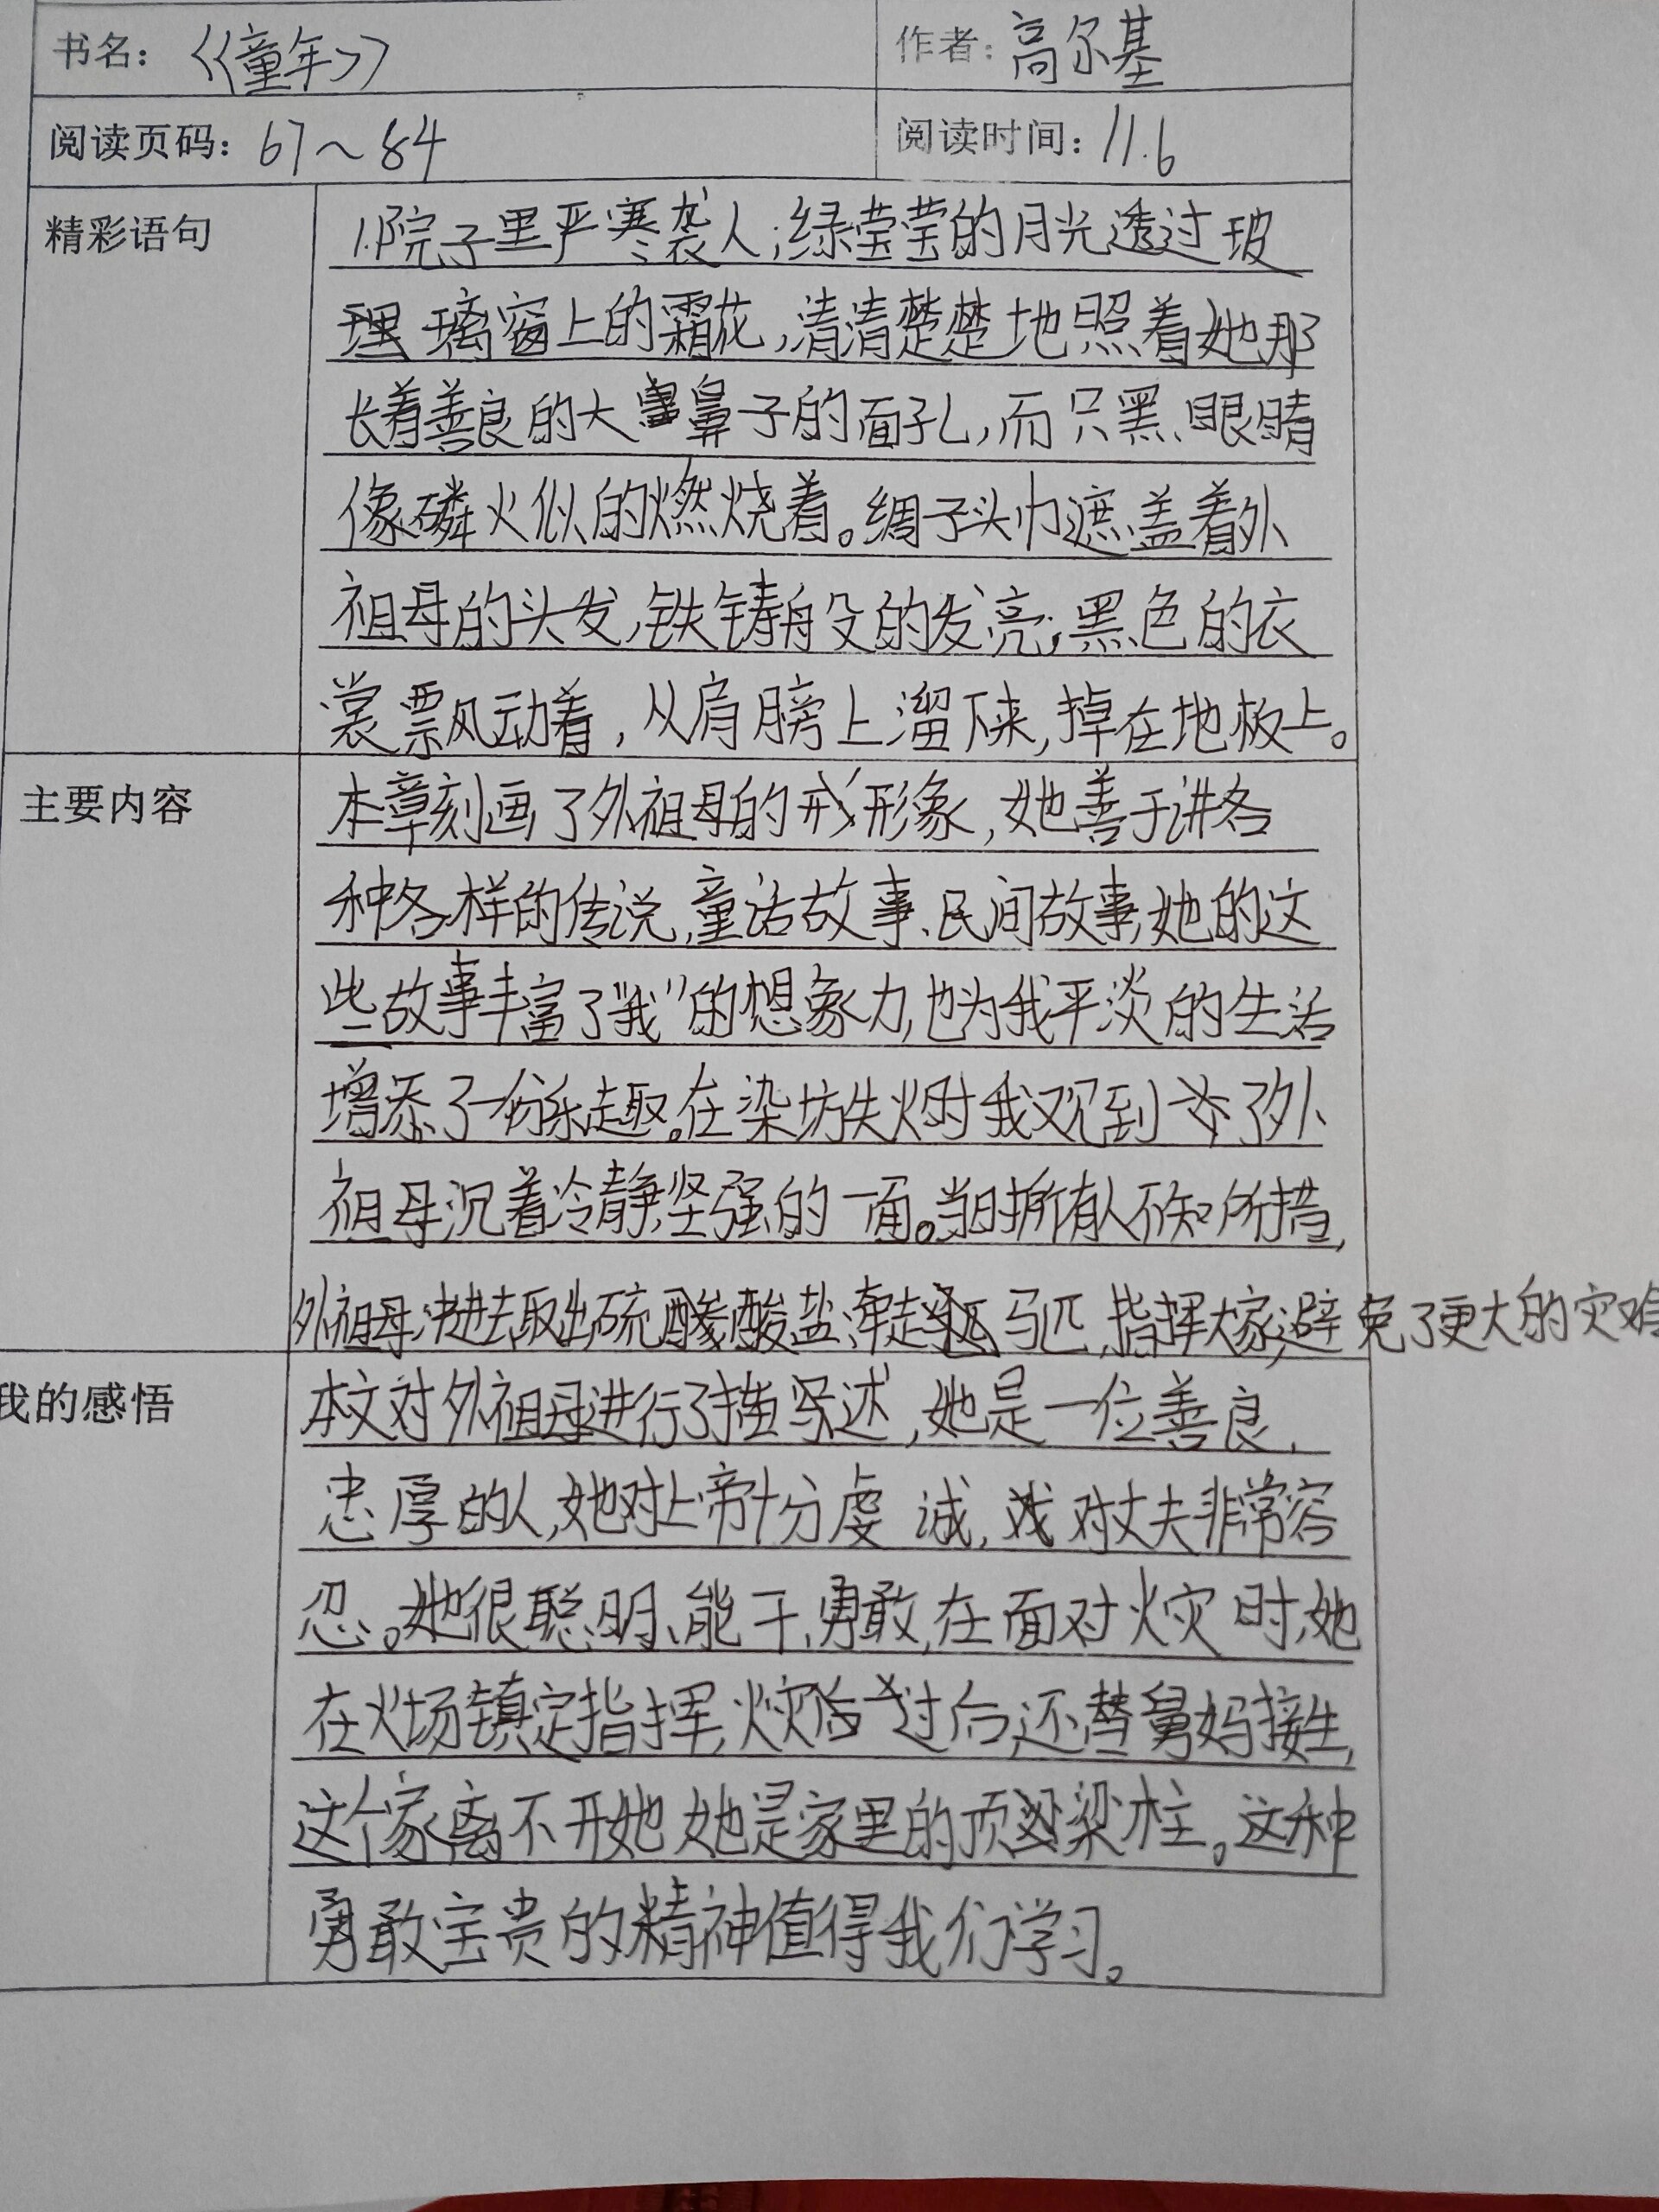 书名：《童年》 作者：高尔基
阅读页码：67～84 阅读时间：11.6
精彩语句 1.院子里严寒袭人；绿莹莹的月光透过玻
璃窗上的霜花，清清楚楚地照着她那
长着善良的大鼻子的面孔，而只黑眼睛
像磷火似的燃烧着。绸子头巾遮盖着外
祖母的头发，铁铸般的发亮；黑色的衣
裳飘动着，从肩膀上溜下来，掉在地板上。
主要内容 本章刻画了外祖母的形象，她善于讲各
种各样的传说，童话故事、民间故事，她的这
些故事丰富了"我"的想象力，也为我平淡的生活
增添了一份乐趣。在染坊失火时我又见到了外
祖母沉着冷静、坚强的一面。当时所有人不知所措，
外祖母冲进去取出硫酸盐，牵走马匹，指挥大家，避免了更大的灾难
我的感悟 本文对外祖母进行了描述，她是一位善良、
忠厚的人，她对上帝十分虔诚，对丈夫非常容
忍。她很聪明、能干、勇敢，在面对火灾时，她
在火场镇定指挥，火灾过后，还替舅妈接生，
这个家离不开她，她是家里的顶梁柱。这种
勇敢宝贵的精神值得我们学习。